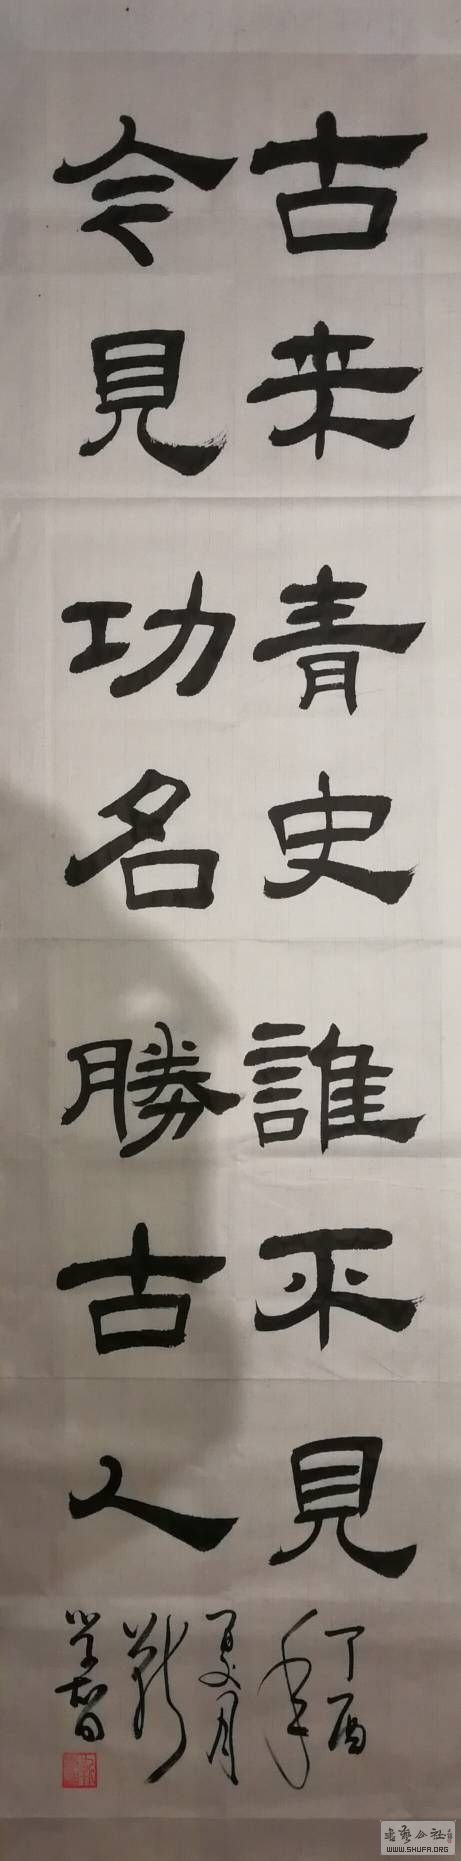 古来青史誰不見
今見功名勝古人
丁酉
年
夏月
学智
书艺公社
WWW.SHUFA.ORG